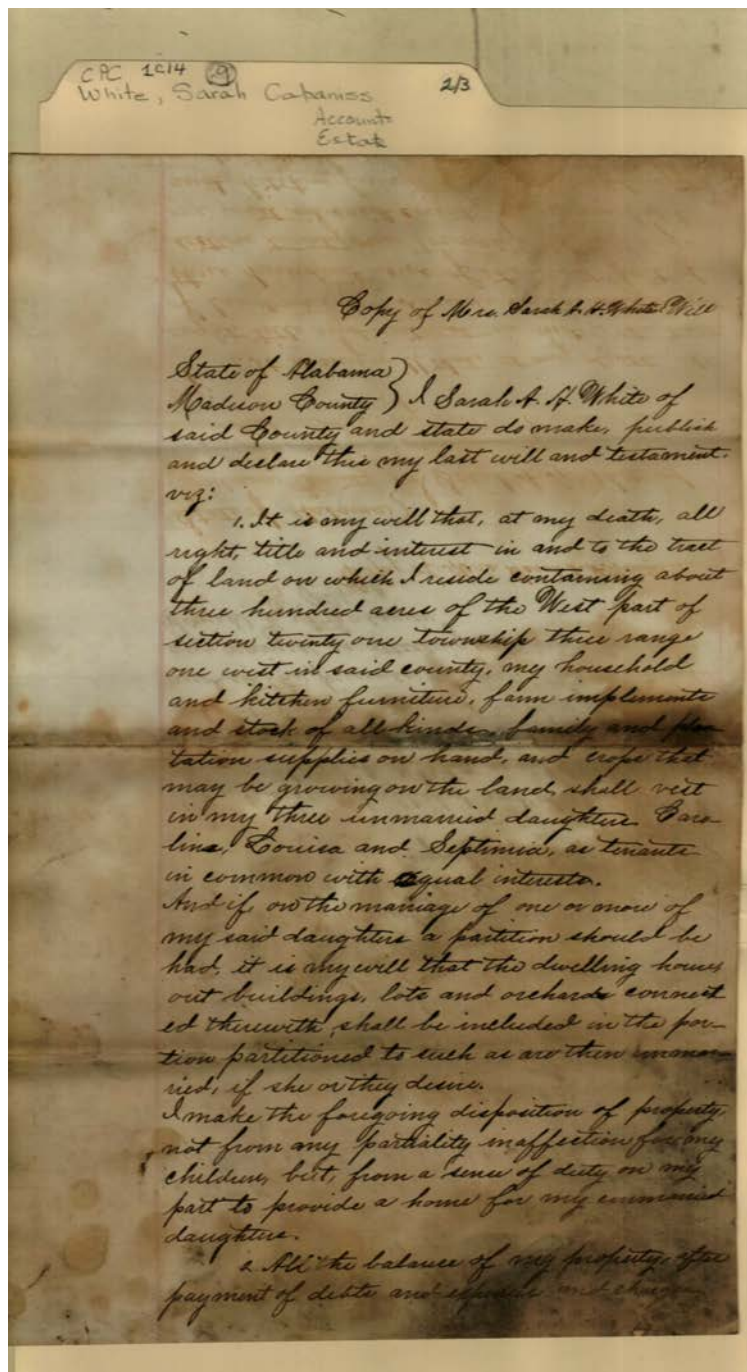 CPC 1C14 9
White, Sarah Cabaniss 2/3
Accounts
Estate
Copy of Mrs. Sarah A. H. White Will
State of Alabama }
Madison County } I Sarah A. H. White of
said County and state do make, publish
and declare this my last will and testament.
viz:
1. It is my will that, at my death, all
right, title and interest in and to the tract
of land on which I reside containing about
three hundred acres of the West part of
section twenty one township three range
one west in said county, my household
and kitchen furniture, farm implements
and stock of all kinds, family and plan-
tation supplies on hand, and crops that
may be growing on the land, shall vest
in my three unmarried daughters Caro-
line, Louisa and Septimia, as tenants
in common with equal interests.
And if on the marriage of one or more of
my said daughters a partition should be
had, it is my will that the dwelling house,
out buildings, lots and orchards connect
ed therewith, shall be included in the por-
tion partitioned to such as are then unmar-
ried, if she or they desire.
I make the foregoing disposition of property,
not from any partiality in affection for my
children, but, from a sense of duty on my
part to provide a home for my unmarried
daughters.
2. All the balance of my property, after
payment of debts and expenses and charges